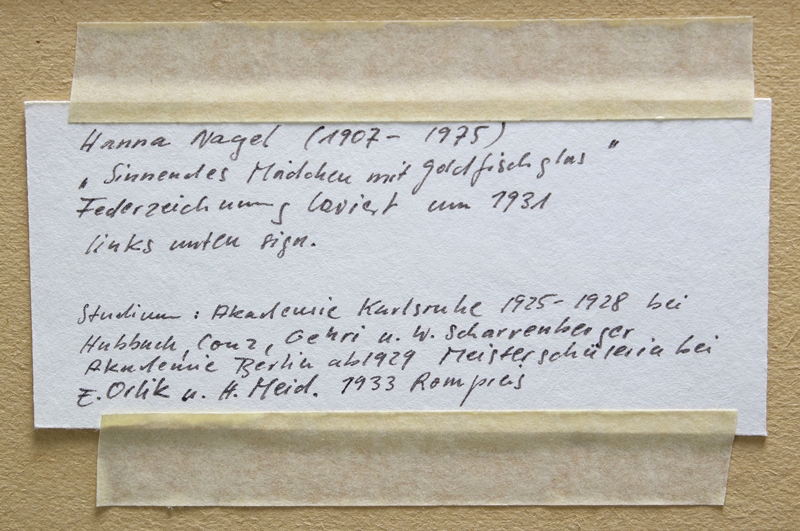 Hanna Nagel (1907 - 1975)
„ Sinnendes Mädchen mit Goldfischglas "
Federzeichnung laviert um 1931
links unten sign.
Studium : Akademie Karlsruhe 1925 - 1928 bei
Hubbuch, Conz, Gehri u. W. Scharrenberger
Akademie Berlin ab 1929 Meisterschülerin bei
E. Orlik u. H. Meid. 1933 Rompreis